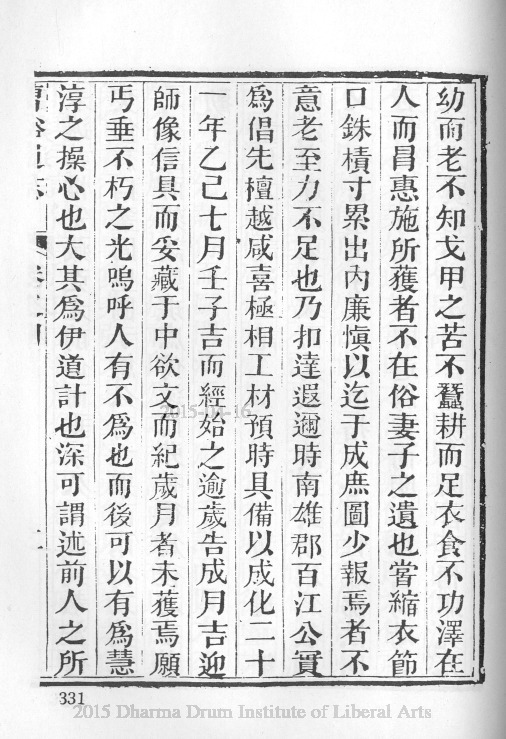 幼而老不知戈甲之苦不蠶耕而足衣食不功澤在
人而冒惠施所獲者不在俗妻子之遺也嘗縮衣節
口銖積寸累出內廉慎以迄于成庶圖少報焉者不
意老至力不足也乃扣達遐邇時南雄郡百江公實
爲倡先檀越咸喜極相工材預時具備以成化二十
一年乙巳七月壬子吉而經始之逾歲告成月吉迎
師像信具而妥藏于中欲文而紀歲月者未獲焉願
丐垂不朽之光嗚呼人有不爲也而後可以有爲慧
淳之操心也大其爲伊道計也深可謂述前人之所
331
2015-01-16
2015 Dharma Drum Institute of Liberal Arts